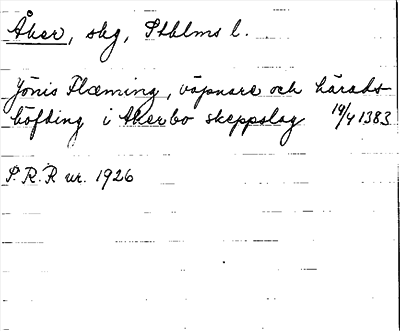 Åker, skg, Sthlms l.
Jönis Flæming, väpnare och härads-
höfding i Akerbo skeppslag 14/4 1383
S.R.R nr. 1926